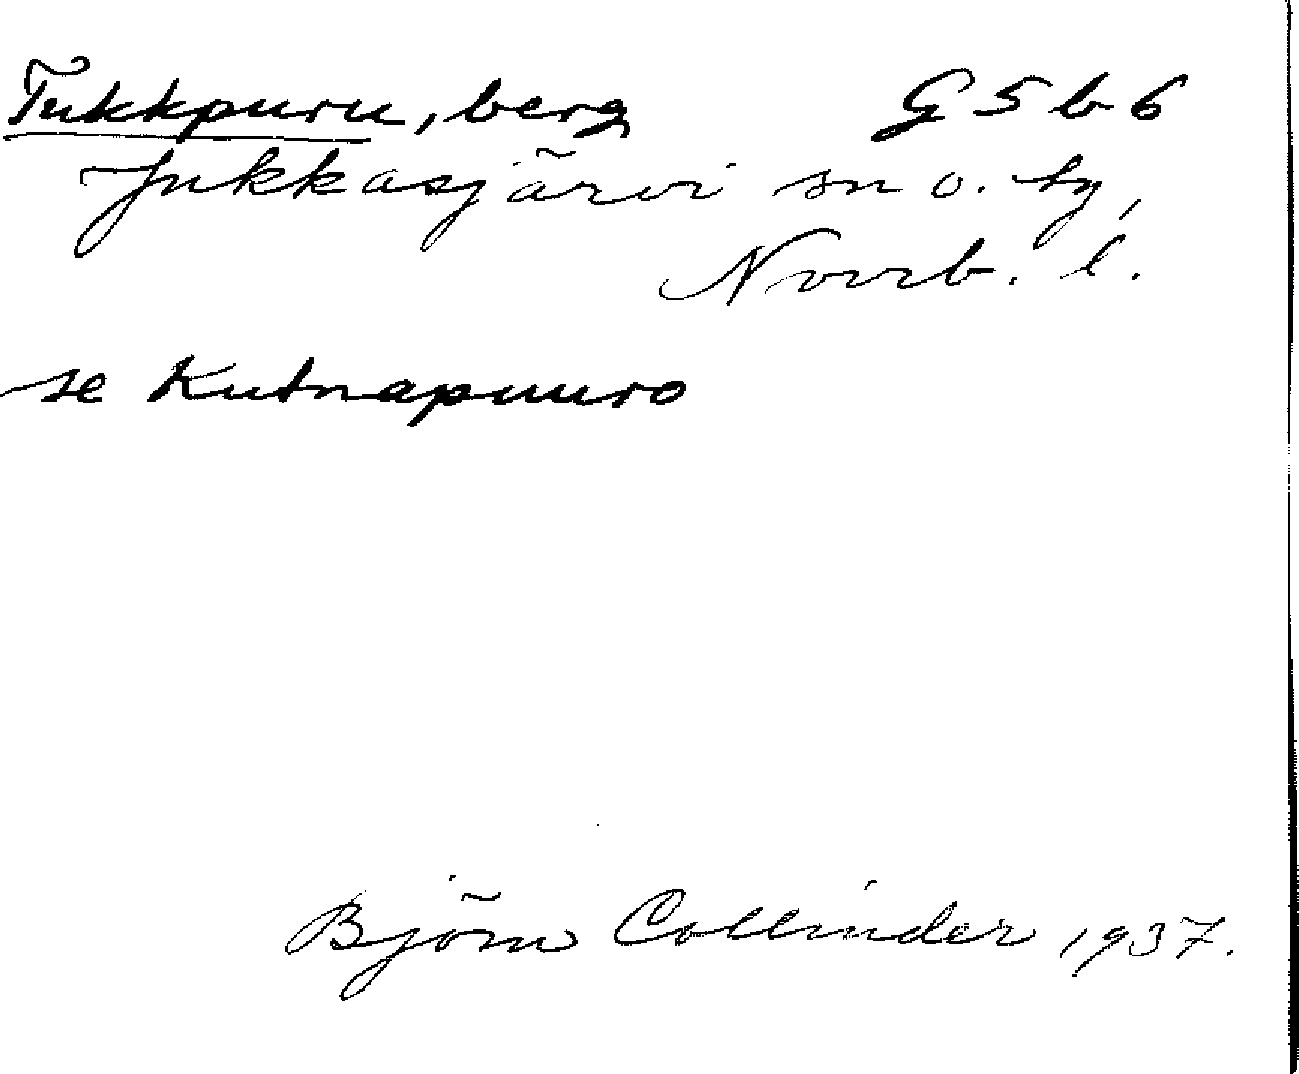 Tukkpuru, berg G5b6
Jukkasjärvi sn o. tg,
Norrb. l.
se Kutnapuuro
Björn Collinder 1937.